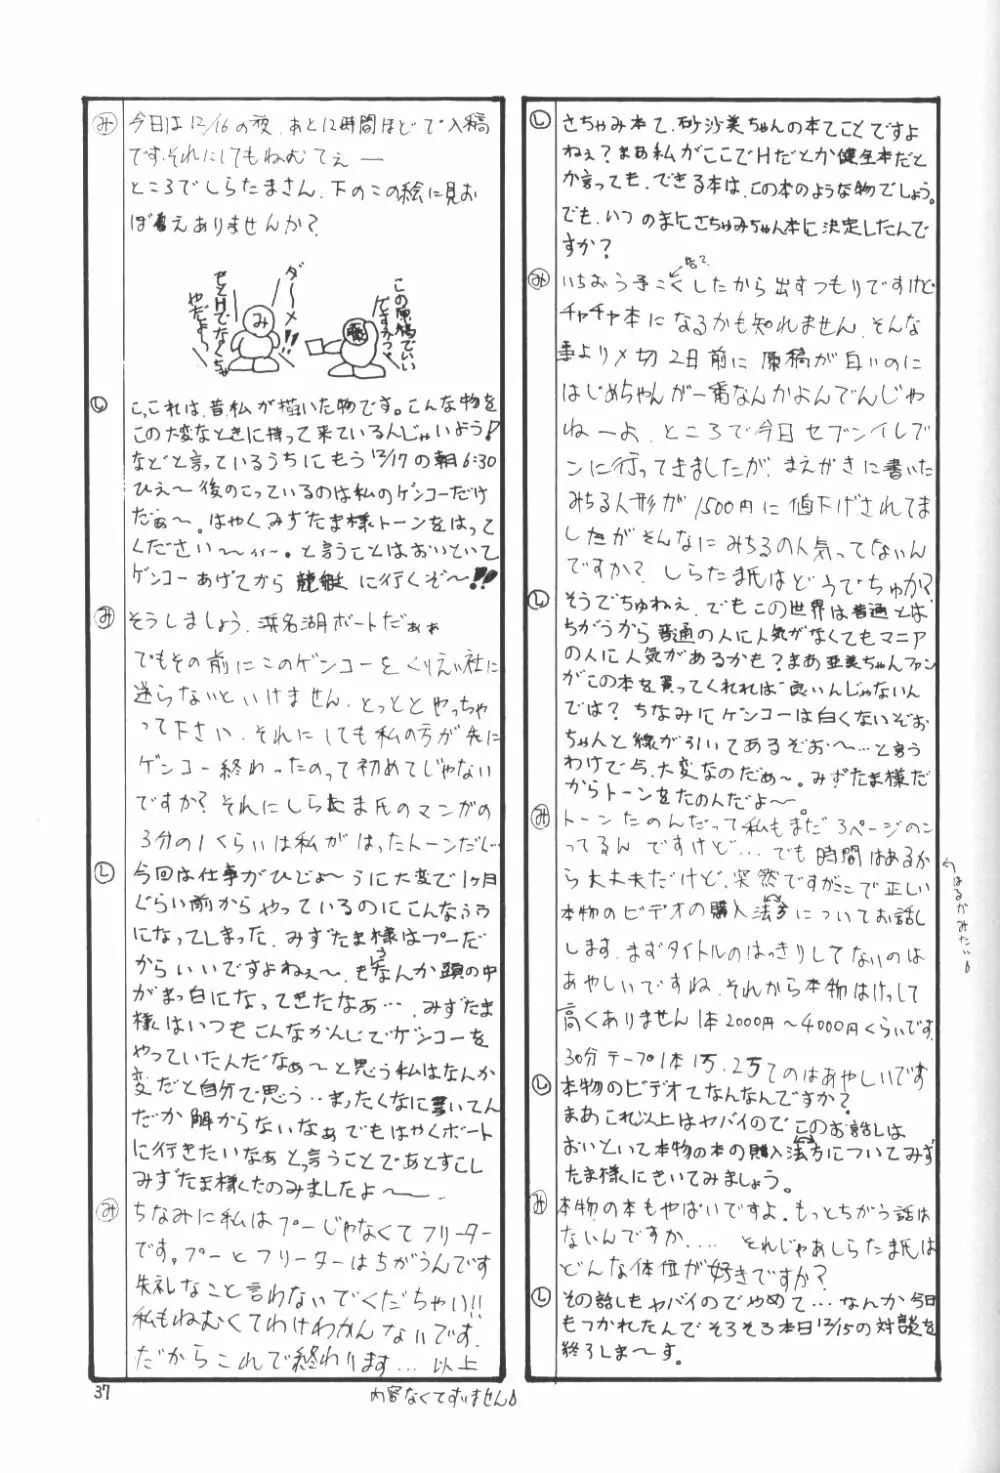 し
さちゅみ本て、砂沙美ちゃんの本てことですよ
ねぇ？まあ私がここでHだとか健全本だと
か言っても、できる本は、この本のような物でしょう。
でも、いつのまにさちゅみちゃん本に決定したんで
すか？
み
いちおう予こくしたから出すつもりですけど
チャチャ本になるかも知れません。そんな
事より〆切2日前に原稿が白いのに
はじめちゃんが一番なんかよんでんじゃ
ねーよ、ところで今日セブンイレブ
ンに行ってきましたが、まえがきに書いた
みちる人形が1500円に値下げされてま
したがそんなにみちるの人気ってないん
ですか？しらたま氏はどうでちゅか？
し
そうでちゅねぇ、でもこの世界は普通とは
ちがうから普通の人に人気がなくてもマニア
の人に人気があるかも？まあ亜美ちゃんファン
がこの本を買ってくれれば良いんじゃないん
では？ちなみにゲンコーは白くないぞお
ちゃんと線が引いてあるぞお〜…と言う
わけで今、大変なのだぁ〜。みずたま様だ
からトーンをたのんだよ〜。
み
トーンたのんだって私もまだ3ページのこ
ってるんですけど…でも時間はあるか
ら大丈夫だけど、
し
なんか今日
もつかれたんでそろそろ本日12/15の対談を
終了しま〜す。
み
今日は12/16の夜、あと12時間ほどで入稿
です。それにしてもねむてぇー
ところでしらたまさん、下のこの絵に見お
ぼえありませんか？
ダ〜メ!!
せとHでなくちゃ
やだよっ
み
この原稿でいい
ですかっ
し
こ、これは、昔、私が描いた物です。こんな物を
この大変なときに持って来ている人じゃいよう！
などと言っているうちにもう12/17の朝6:30
ひえ〜後のこっているのは私のゲンコーだけ
だぁ〜。はやくみずたま様トーンをはって
ください〜。と言うことはおいといて
ゲンコーあげてから競艇に行くぞ〜!!
み
そうしましょう、浜名湖ボートだぁぁ
でもその前にこのゲンコーをくりえい社に
送らないといけません、とっととやっちゃ
って下さい、それにしても私の方が先に
ゲンコー終わったのって初めてじゃない
ですか？それにしらたま氏のマンガの
3分の1くらいは私がはったトーンだし
し
今回は仕事がひじょ〜うに大変で1ヶ月
ぐらい前からやっているのにこんなふう
になってしまった、みずたま様はプーだ
からいいですよねぇ〜、もうなんか頭の中
がまっ白になってきたなあ…、みずたま
様はいつもこんなかんじでゲンコーを
やっていたんだなぁ〜と思う私はなんか
変だと自分で思う…まったくなに書いてん
だか解からないなぁでもはやくボート
に行きたいなぁと言うことであとすこし
みずたま様くたのみましたよ〜
み
ちなみに私はプーじゃなくてフリーター
です。プーとフリーターはちがうんです
失礼なこと言わないでくだちゃい!!
私もねむくてわけわかんないです。
だからこれで終わります…以上
37
内容なくてすいません